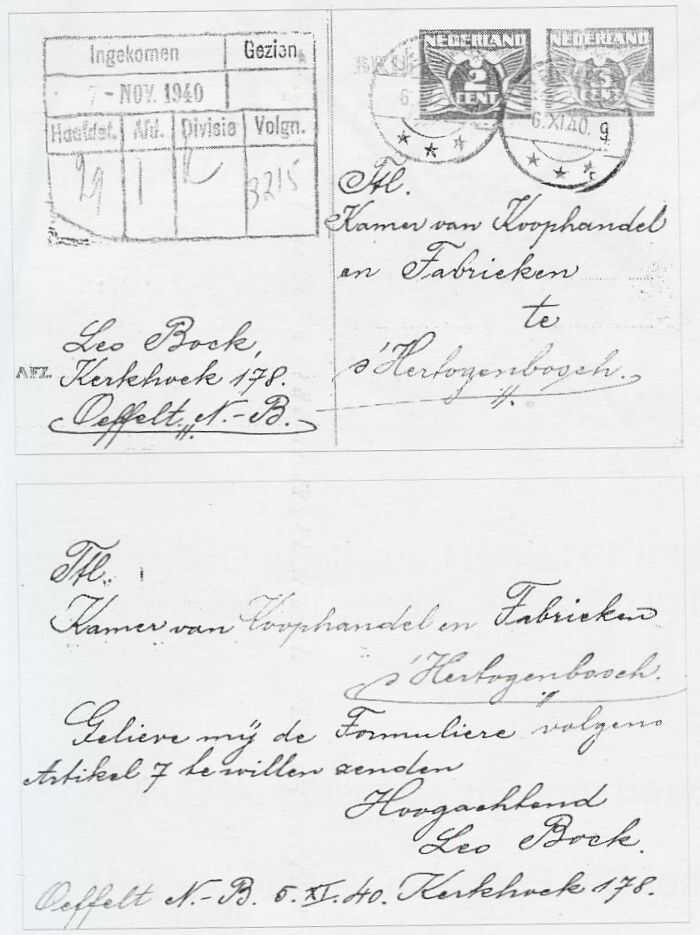 Ingekomen
Gezien.
7 - NOV. 1940
Hoofdst. Afd. Divisie Volgn.
29 1 8215
NEDERLAND
2
CENT
NEDERLAND
CENT
6.XI.40. 9
Ttl.
Kamer van Koophandel
en Fabrieken
te
s'Hertogenbosch.
Leo Bock,
AFZ. Kerkhoek 178.
Oeffelt. N.-B.
Ttl.
Kamer van Koophandel en Fabrieken
s'Hertogenbosch.
Gelieve mij de Formuliere volgens
Artikel 7 te willen zenden
Hoogachtend
Leo Bock.
Oeffelt N.-B. 5.XI.40. Kerkhoek 178.